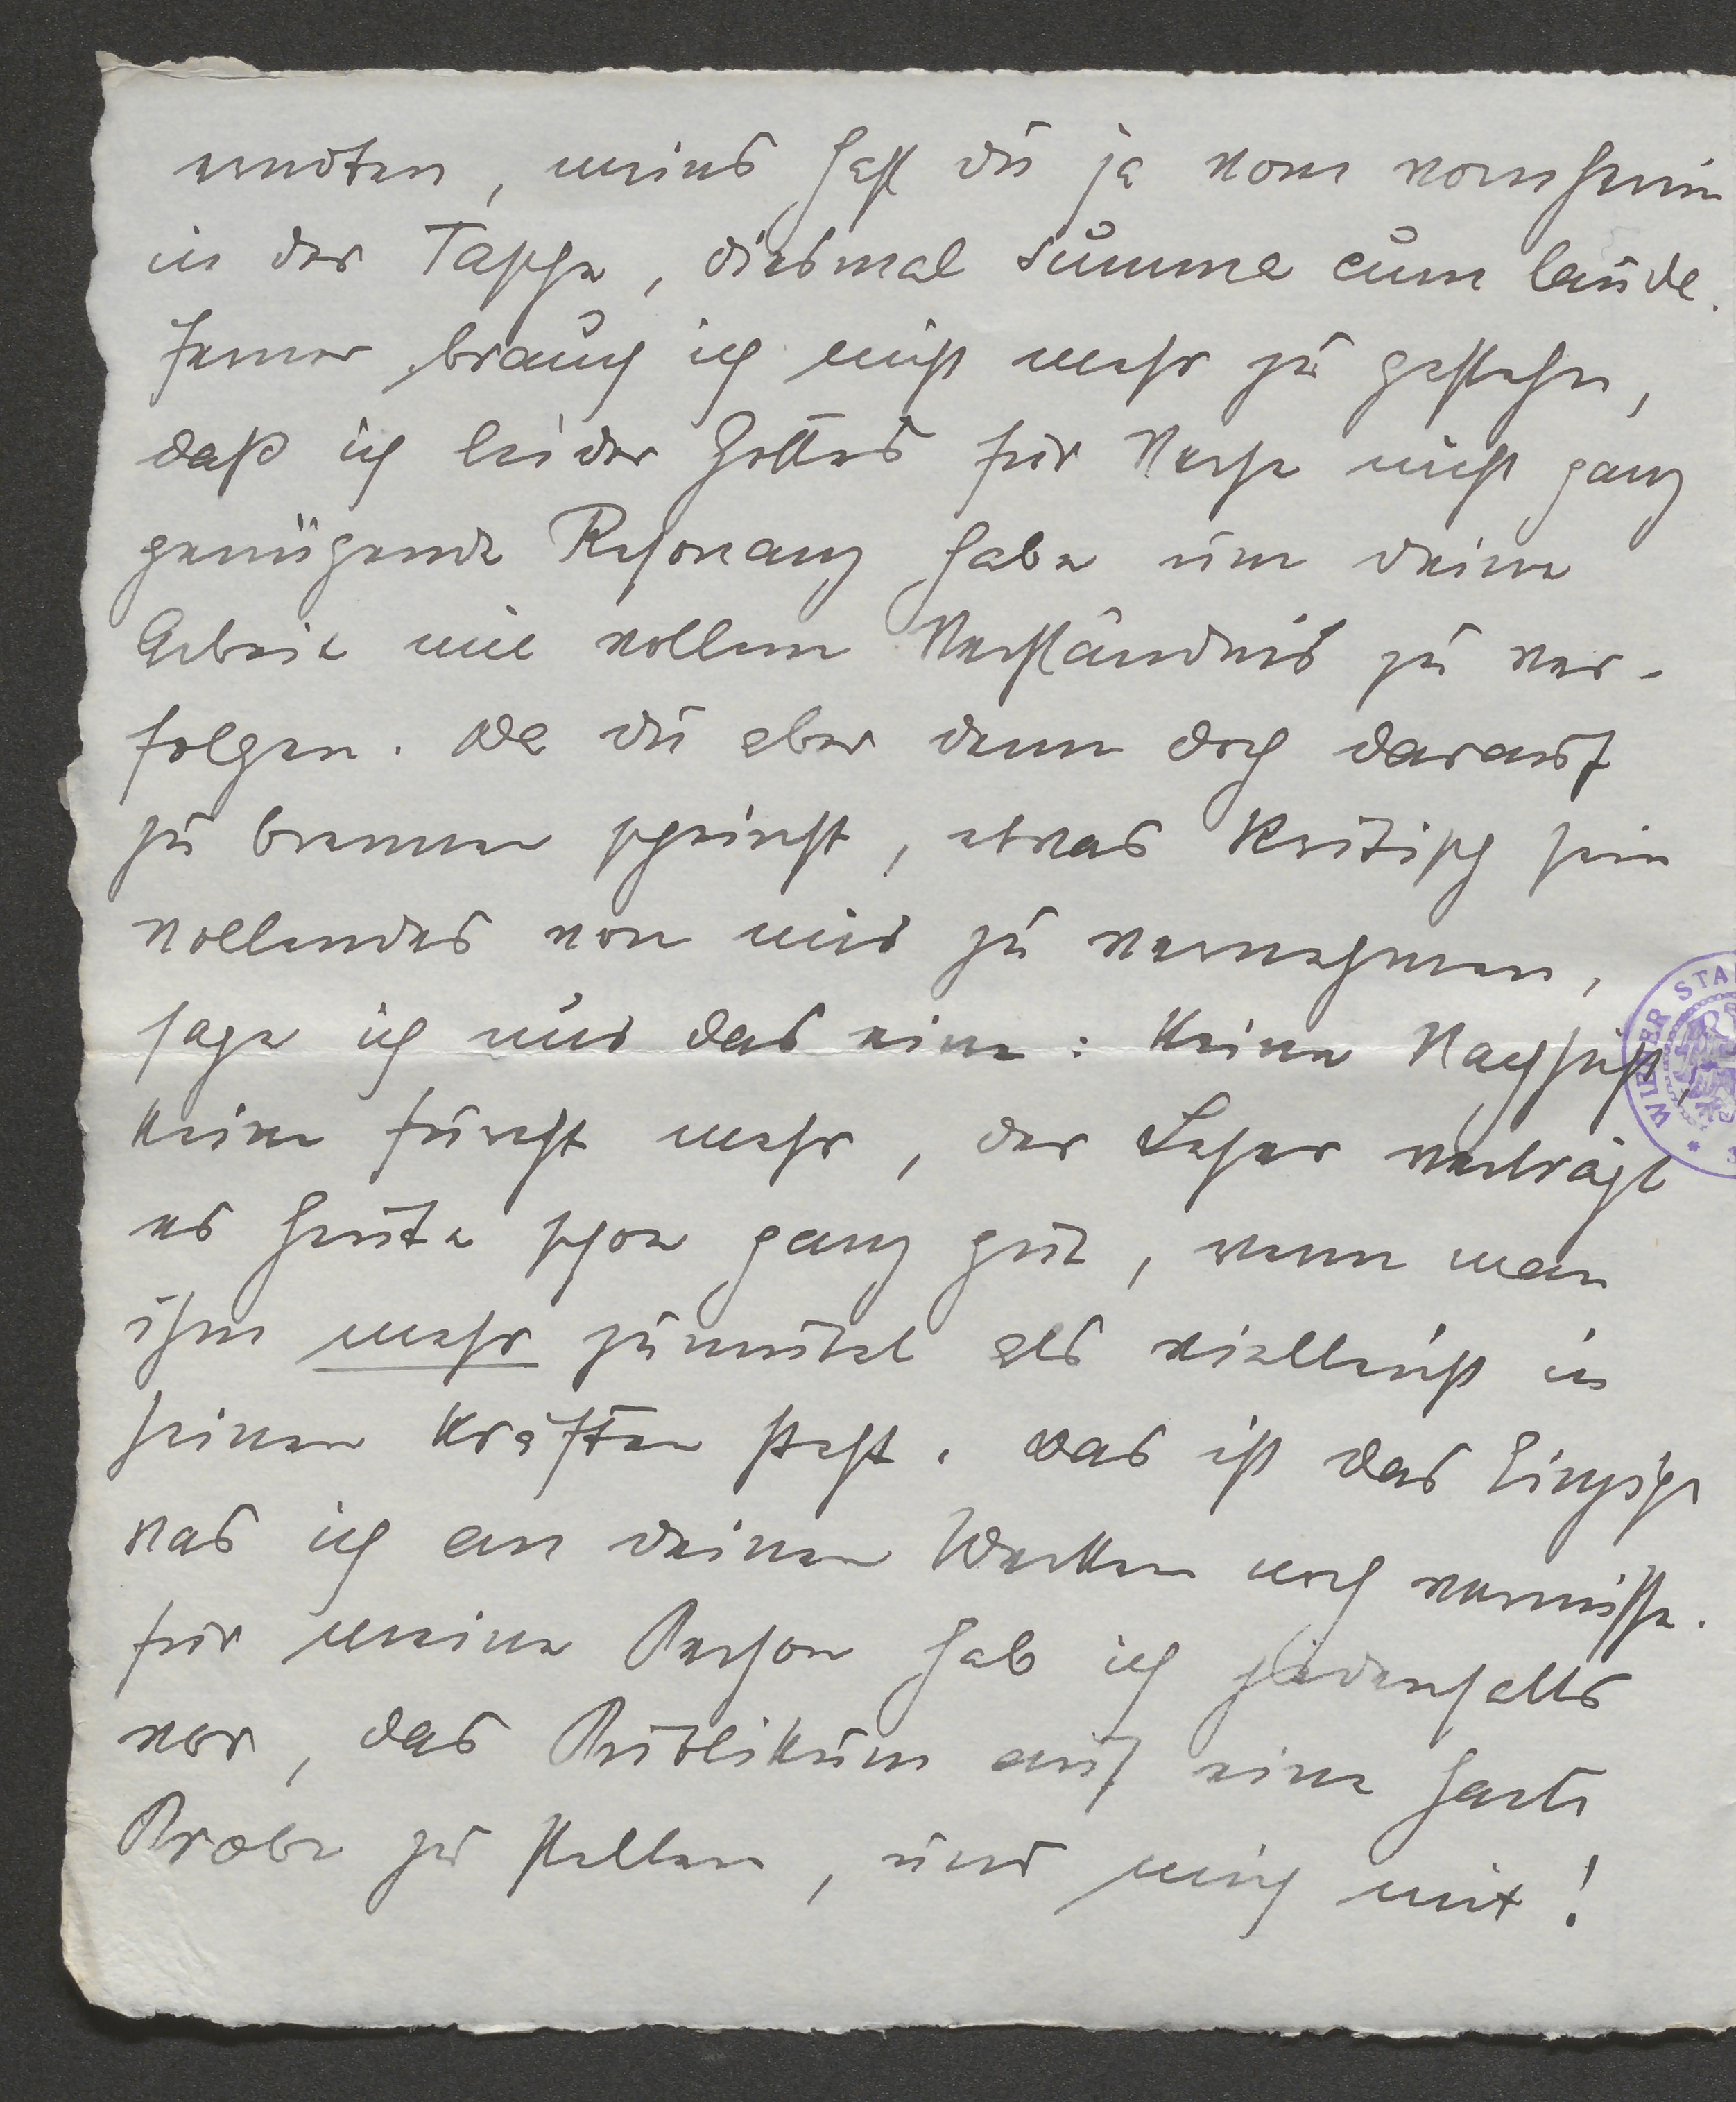 erndten, meins hast du ja vom vornherein
in der Tasche, diesmal summa cum laude.
Ferner brauch ich nicht mehr zu gestehn,
daß ich leider Gottes für Verse nicht ganz
genügende Resonanz habe um deine
Arbeit mit vollem Verständnis zu ver-
folgen. Da du aber denn doch darauf
zu brennen scheinst, etwas kritisch sein
wollendes von mir zu vernehmen,
sage ich nur das eine: keine Nachsicht,
keine Furcht mehr, der Leser verträgt
es heute schon ganz gut, wenn man
ihm mehr zumutet als vielleicht in
seinen Kräften steht. Das ist das Einzige
was ich an deinen Werken noch vermisse.
Für meine Person hab ich jedenfalls
vor, das Publikum auf eine harte
Probe zu stellen, und mich mit!
WIENER STA